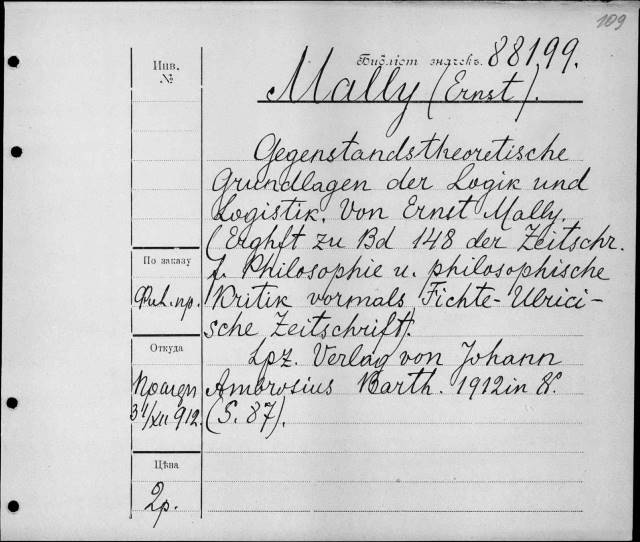 109
Инв. №
Библіот значекъ. 88199.
Mally (Ernst).
Gegenstandstheoretische
Grundlagen der Logik und
Logistik. Von Ernst Mally.
(Erghft zu Bd 148 der Zeitschr.
f. Philosophie u. philosophische
Kritik vormals Fichte-Ulrici-
sche Zeitschrift).
Lpz. Verlag von Johann
Ambrosius Barth. 1912 in 8º.
(S. 87).
По заказу
Фил. пр.
Откуда
31/XII 912.
Цѣна
2р.